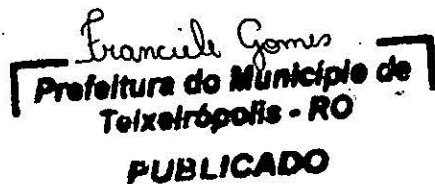 Franciele Gomes
Prefeitura do Município de
Teixeirópolis - RO
PUBLICADO